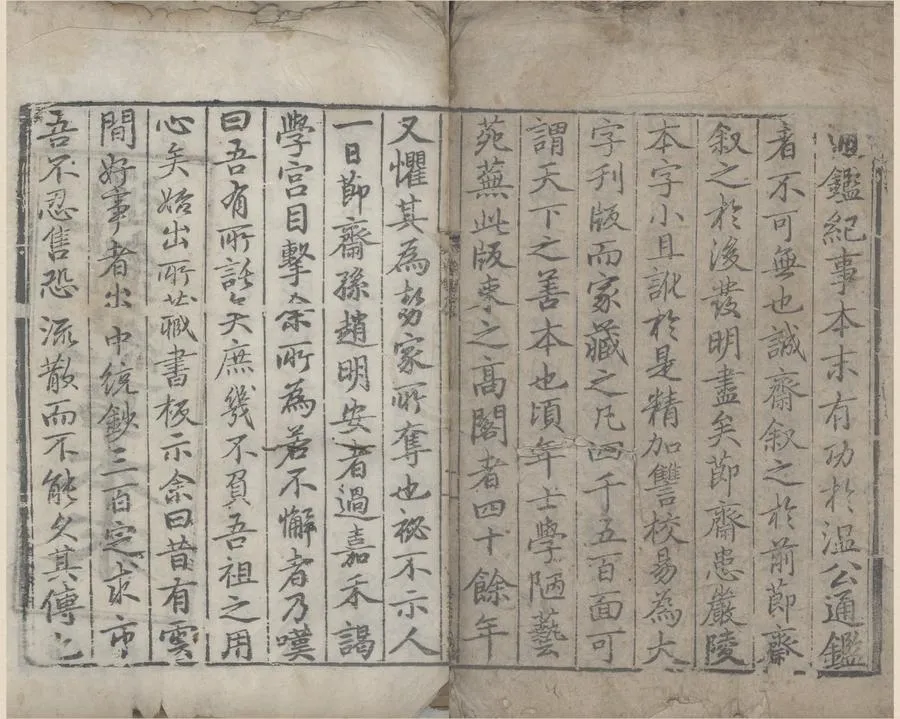 通鑑紀事本末有功於溫公通鑑
者不可無也誠齋叙之於前節齋
叙之於後發明盡矣節齋患嚴陵
本字小且訛於是精加讐校易為大
字刊版而家藏之凡四千五百面可
謂天下之善本也頃年士學陋藝
苑蕪此版束之高閣者四十餘年
又懼其為勢家所奪也祕不示人
一日節齋孫趙明安者過嘉禾謁
學宮目擊余所為若不懈者乃嘆
曰吾有所託矣庶幾不負吾祖之用
心矣始出所藏書板示余曰昔有雲
間好事者出中統鈔三百定求市
吾不忍售恐流散而不能久其傳也